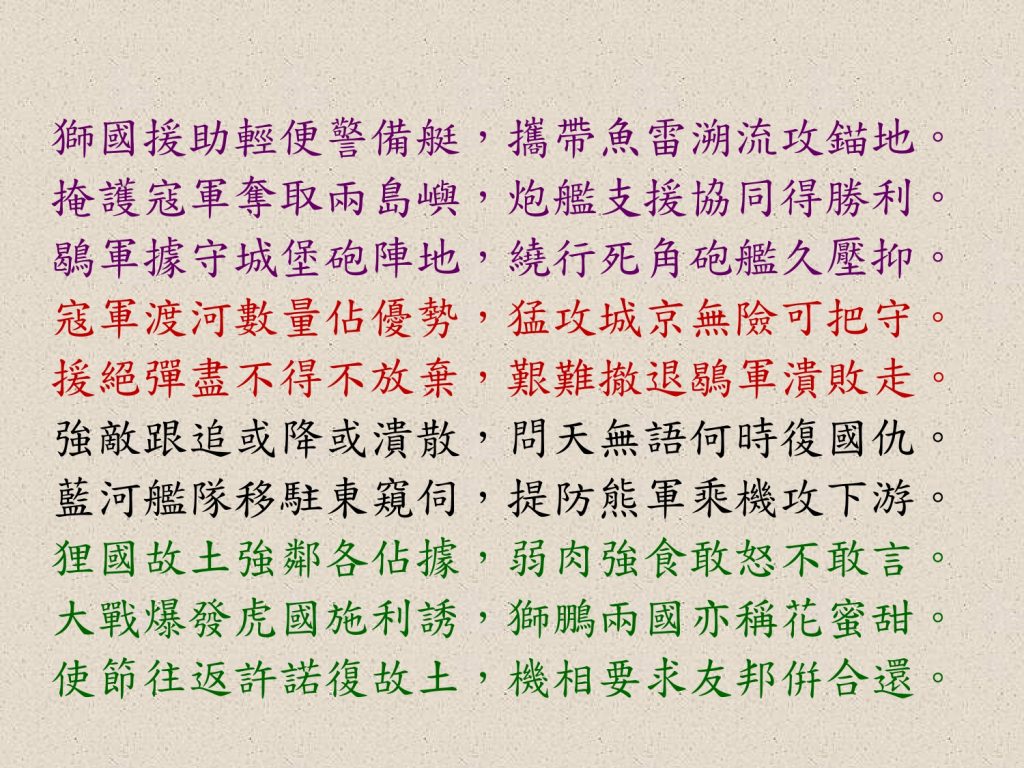 獅國援助輕便警備艇，攜帶魚雷溯流攻錨地。
掩護寇軍奪取兩島嶼，炮艦支援協同得勝利。
鶡軍據守城堡砲陣地，繞行死角砲艦久壓抑。
寇軍渡河數量佔優勢，猛攻城京無險可把守。
援絕彈盡不得不放棄，艱難撤退鶡軍潰敗走。
強敵跟追或降或潰散，問天無語何時復國仇。
藍河艦隊移駐東窺伺，提防熊軍乘機攻下游。
狸國故土強鄰各佔據，弱肉強食敢怒不敢言。
大戰爆發虎國施利誘，獅鵬兩國亦稱花蜜甜。
使節往返許諾復故土，機相要求友邦倂合還。